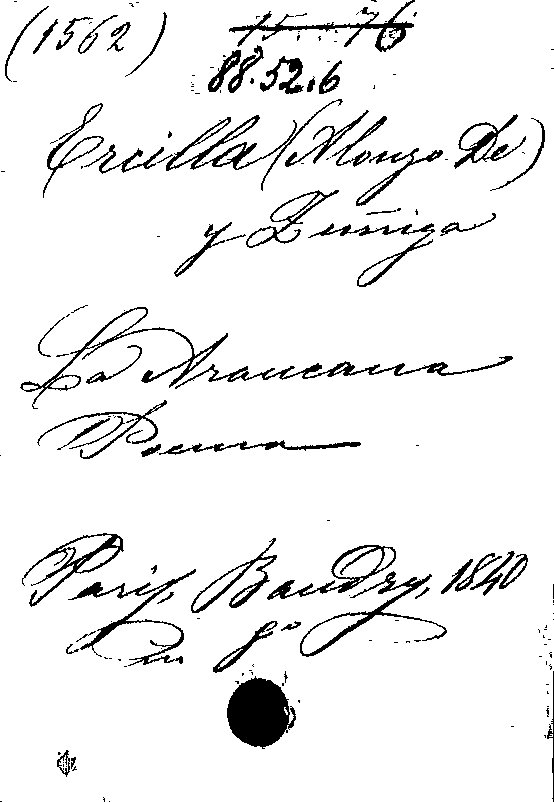 (1562)
88.52.6
Ercilla (Alonzo De)
y Zuñiga
La Araucana
Poema
Paris, Baudry, 1840
in 8º